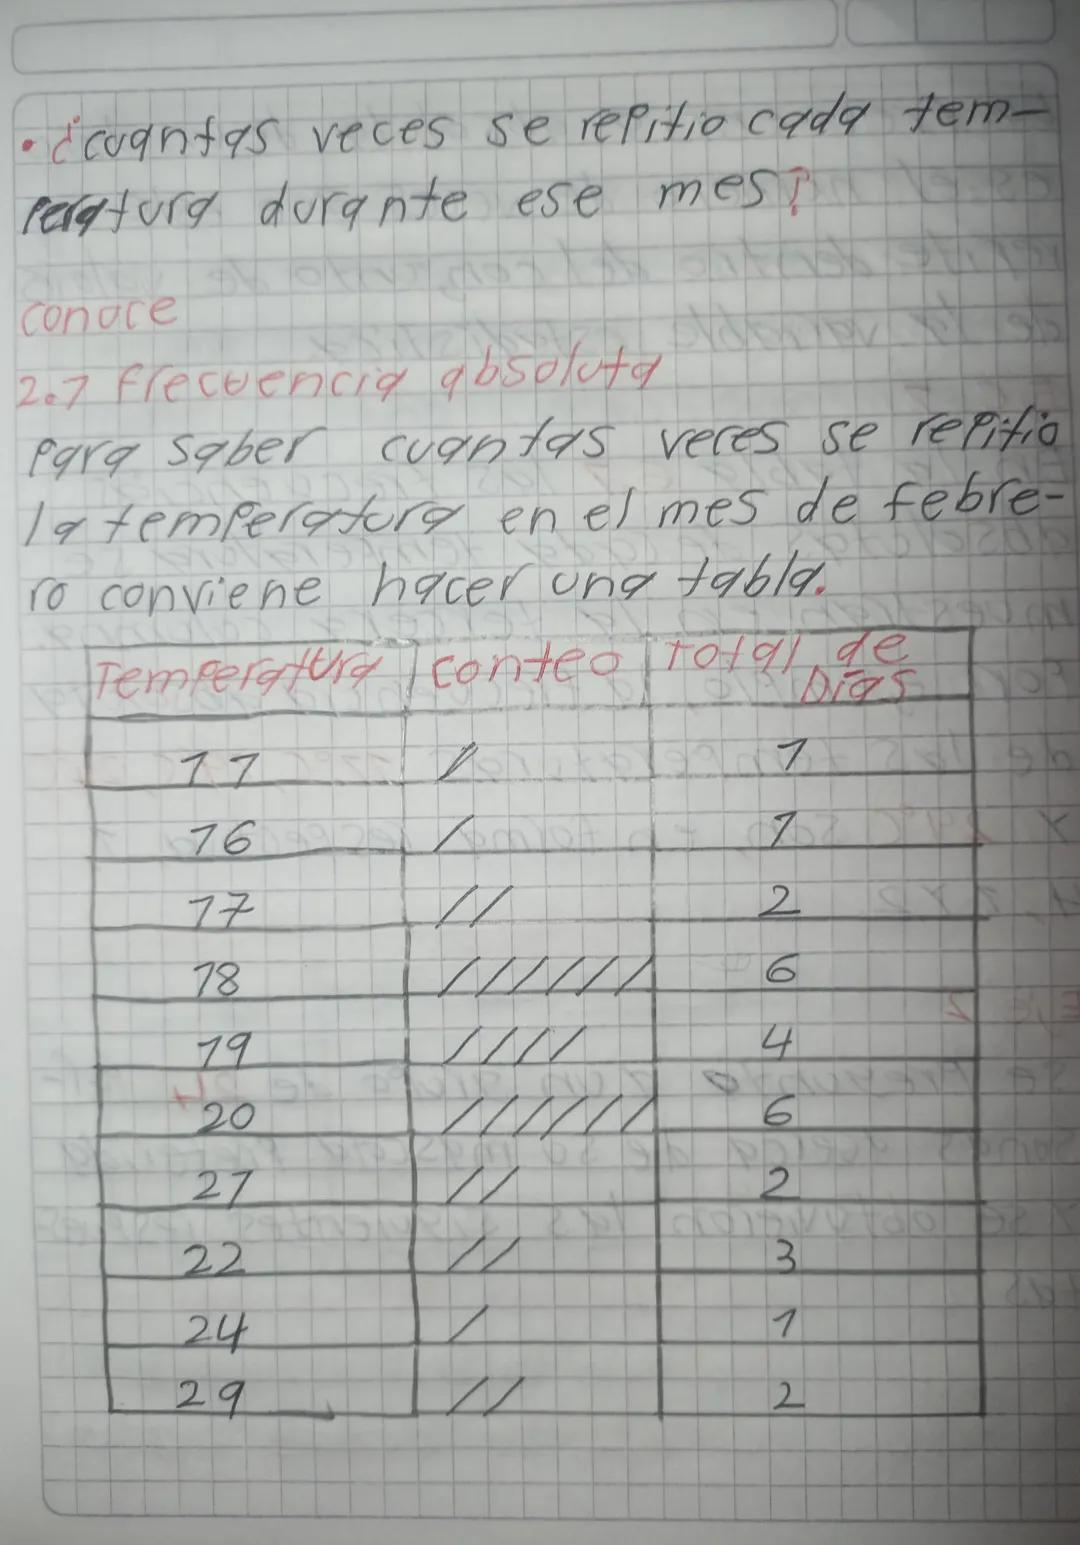 • ¿cuantas veces se repitio cada tem-
peratura durante ese mes?
conoce
2.7 Frecuencia absoluta
para saber cuantas veces se repitio
la temperatura en el mes de febre-
ro conviene hacer una tabla.
Temperatura conteo total de Dias
11 / 1
16 / 1
17 // 2
18 ////// 6
19 //// 4
20 ////// 6
21 // 2
22 // 3
24 / 1
29 // 2